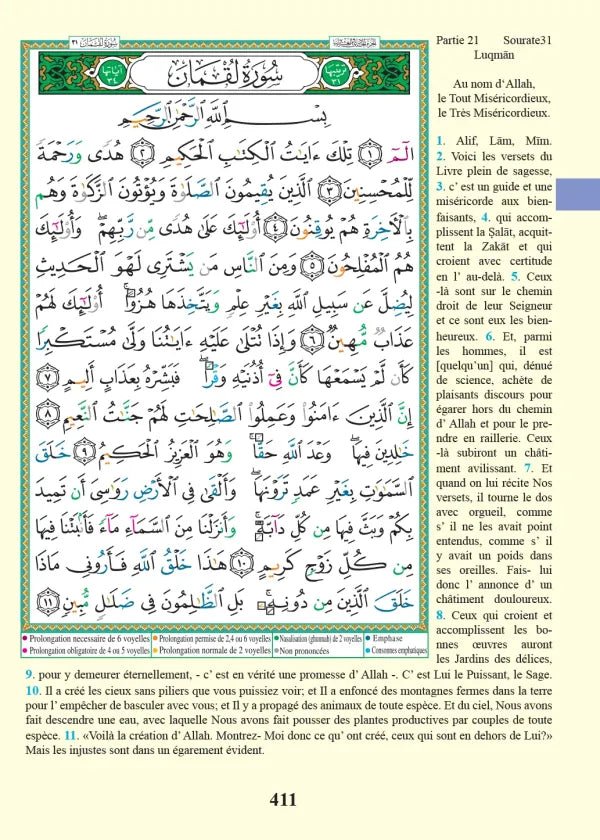 الجزء الحادي والعشرون
سُورَةُ لُقْمَان ٣١
ترتيبها ٣١ سُورَةُ لُقْمَان آياتها ٣٤
بِسْمِ ٱللَّهِ ٱلرَّحْمَٰنِ ٱلرَّحِيمِ
الٓمٓ ١ تِلْكَ ءَايَٰتُ ٱلْكِتَٰبِ ٱلْحَكِيمِ ٢ هُدًى وَرَحْمَةً
لِّلْمُحْسِنِينَ ٣ ٱلَّذِينَ يُقِيمُونَ ٱلصَّلَوٰةَ وَيُؤْتُونَ ٱلزَّكَوٰةَ وَهُم
بِٱلْأٓخِرَةِ هُمْ يُوقِنُونَ ٤ أُو۟لَٰٓئِكَ عَلَىٰ هُدًى مِّن رَّبِّهِمْ ۖ وَأُو۟لَٰٓئِكَ
هُمُ ٱلْمُفْلِحُونَ ٥ وَمِنَ ٱلنَّاسِ مَن يَشْتَرِى لَهْوَ ٱلْحَدِيثِ
لِيُضِلَّ عَن سَبِيلِ ٱللَّهِ بِغَيْرِ عِلْمٍ وَيَتَّخِذَهَا هُزُوًا ۚ أُو۟لَٰٓئِكَ لَهُمْ
عَذَابٌ مُّهِينٌ ٦ وَإِذَا تُتْلَىٰ عَلَيْهِ ءَايَٰتُنَا وَلَّىٰ مُسْتَكْبِرًا
كَأَن لَّمْ يَسْمَعْهَا كَأَنَّ فِىٓ أُذُنَيْهِ وَقْرًا ۖ فَبَشِّرْهُ بِعَذَابٍ أَلِيمٍ ٧
إِنَّ ٱلَّذِينَ ءَامَنُوا۟ وَعَمِلُوا۟ ٱلصَّٰلِحَٰتِ لَهُمْ جَنَّٰتُ ٱلنَّعِيمِ ٨
خَٰلِدِينَ فِيهَا ۖ وَعْدَ ٱللَّهِ حَقًّا ۚ وَهُوَ ٱلْعَزِيزُ ٱلْحَكِيمُ ٩ خَلَقَ
ٱلسَّمَٰوَٰتِ بِغَيْرِ عَمَدٍ تَرَوْنَهَا ۖ وَأَلْقَىٰ فِى ٱلْأَرْضِ رَوَٰسِىَ أَن تَمِيدَ
بِكُمْ وَبَثَّ فِيهَا مِن كُلِّ دَآبَّةٍ ۚ وَأَنزَلْنَا مِنَ ٱلسَّمَآءِ مَآءً فَأَنۢبَتْنَا فِيهَا
مِن كُلِّ زَوْجٍ كَرِيمٍ ١٠ هَٰذَا خَلْقُ ٱللَّهِ فَأَرُونِى مَاذَا
خَلَقَ ٱلَّذِينَ مِن دُونِهِۦ ۚ بَلِ ٱلظَّٰلِمُونَ فِى ضَلَٰلٍ مُّبِينٍ ١١
Prolongation necessaire de 6 voyelles Prolongation permise de 2,4 ou 6 voyelles Nasalisation (ghunnah) de 2 voyelles Emphase
Prolongation obligatoire de 4 ou 5 voyelles Prolongation normale de 2 voyelles Non prononcées Consonnes emphatiques
Partie 21 Sourate31
Luqmān
Au nom d‘Allah,
le Tout Miséricordieux,
le Très Miséricordieux.
1. Alif, Lām, Mīm.
2. Voici les versets du
Livre plein de sagesse,
3. c’ est un guide et une
miséricorde aux bien-
faisants, 4. qui accom-
plissent la Ṣalāt, acquit-
tent la Zakāt et qui
croient avec certitude
en l’ au-delà. 5. Ceux
-là sont sur le chemin
droit de leur Seigneur
et ce sont eux les bien-
heureux. 6. Et, parmi
les hommes, il est
[quelqu’un] qui, dénué
de science, achète de
plaisants discours pour
égarer hors du chemin
d’ Allah et pour le pre-
ndre en raillerie. Ceux
-là subiront un châti-
ment avilissant. 7. Et
quand on lui récite Nos
versets, il tourne le dos
avec orgueil, comme
s’ il ne les avait point
entendus, comme s’ il
y avait un poids dans
ses oreilles. Fais- lui
donc l’ annonce d’ un
châtiment douloureux.
8. Ceux qui croient et
accomplissent les bo-
nnes œuvres auront
les Jardins des délices,
9. pour y demeurer éternellement, - c’ est en vérité une promesse d’ Allah -. C’ est Lui le Puissant, le Sage.
10. Il a créé les cieux sans piliers que vous puissiez voir; et Il a enfoncé des montagnes fermes dans la terre
pour l’ empêcher de basculer avec vous; et Il y a propagé des animaux de toute espèce. Et du ciel, Nous avons
fait descendre une eau, avec laquelle Nous avons fait pousser des plantes productives par couples de toute
espèce. 11. «Voilà la création d’ Allah. Montrez- Moi donc ce qu’ ont créé, ceux qui sont en dehors de Lui?»
Mais les injustes sont dans un égarement évident.
411